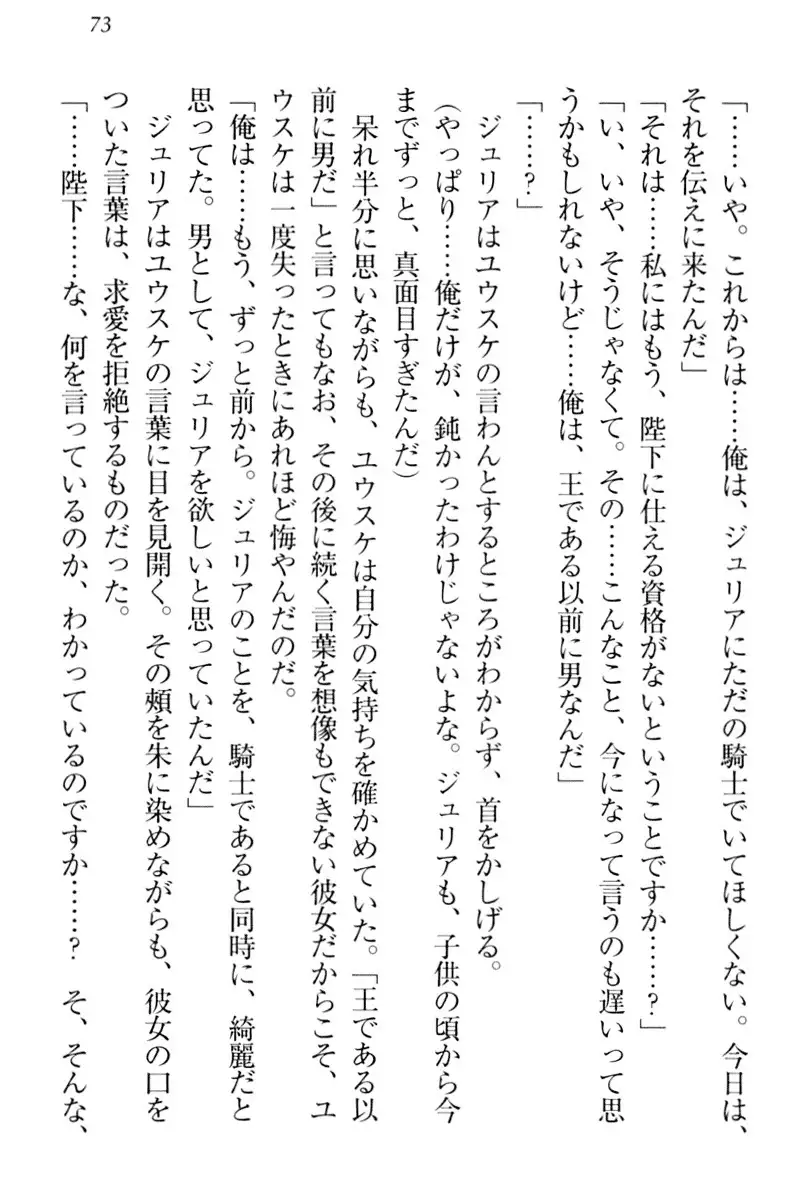 73
「……いや。これからは……俺は、ジュリアにただの騎士でいてほしくない。今日は、
それを伝えに来たんだ」
「それは……私にはもう、陛下に仕える資格がないということですか……?」
「い、いや、そうじゃなくて。その……こんなこと、今になって言うのも遅いって思
うかもしれないけど……俺は、王である以前に男なんだ」
「……?」
ジュリアはユウスケの言わんとするところがわからず、首をかしげる。
(やっぱり……俺だけが、鈍かったわけじゃないよな。ジュリアも、子供の頃から今
までずっと、真面目すぎたんだ)
呆れ半分に思いながらも、ユウスケは自分の気持ちを確かめていた。「王である以
前に男だ」と言ってもなお、その後に続く言葉を想像もできない彼女だからこそ、ユ
ウスケは一度失ったときにあれほど悔やんだのだ。
「俺は……もう、ずっと前から。ジュリアのことを、騎士であると同時に、綺麗だと
思ってた。男として、ジュリアを欲しいと思っていたんだ」
ジュリアはユウスケの言葉に目を見開く。その頬を朱に染めながらも、彼女の口を
ついた言葉は、求愛を拒絶するものだった。
「……陛下……な、何を言っているのか、わかっているのですか……? そ、そんな、